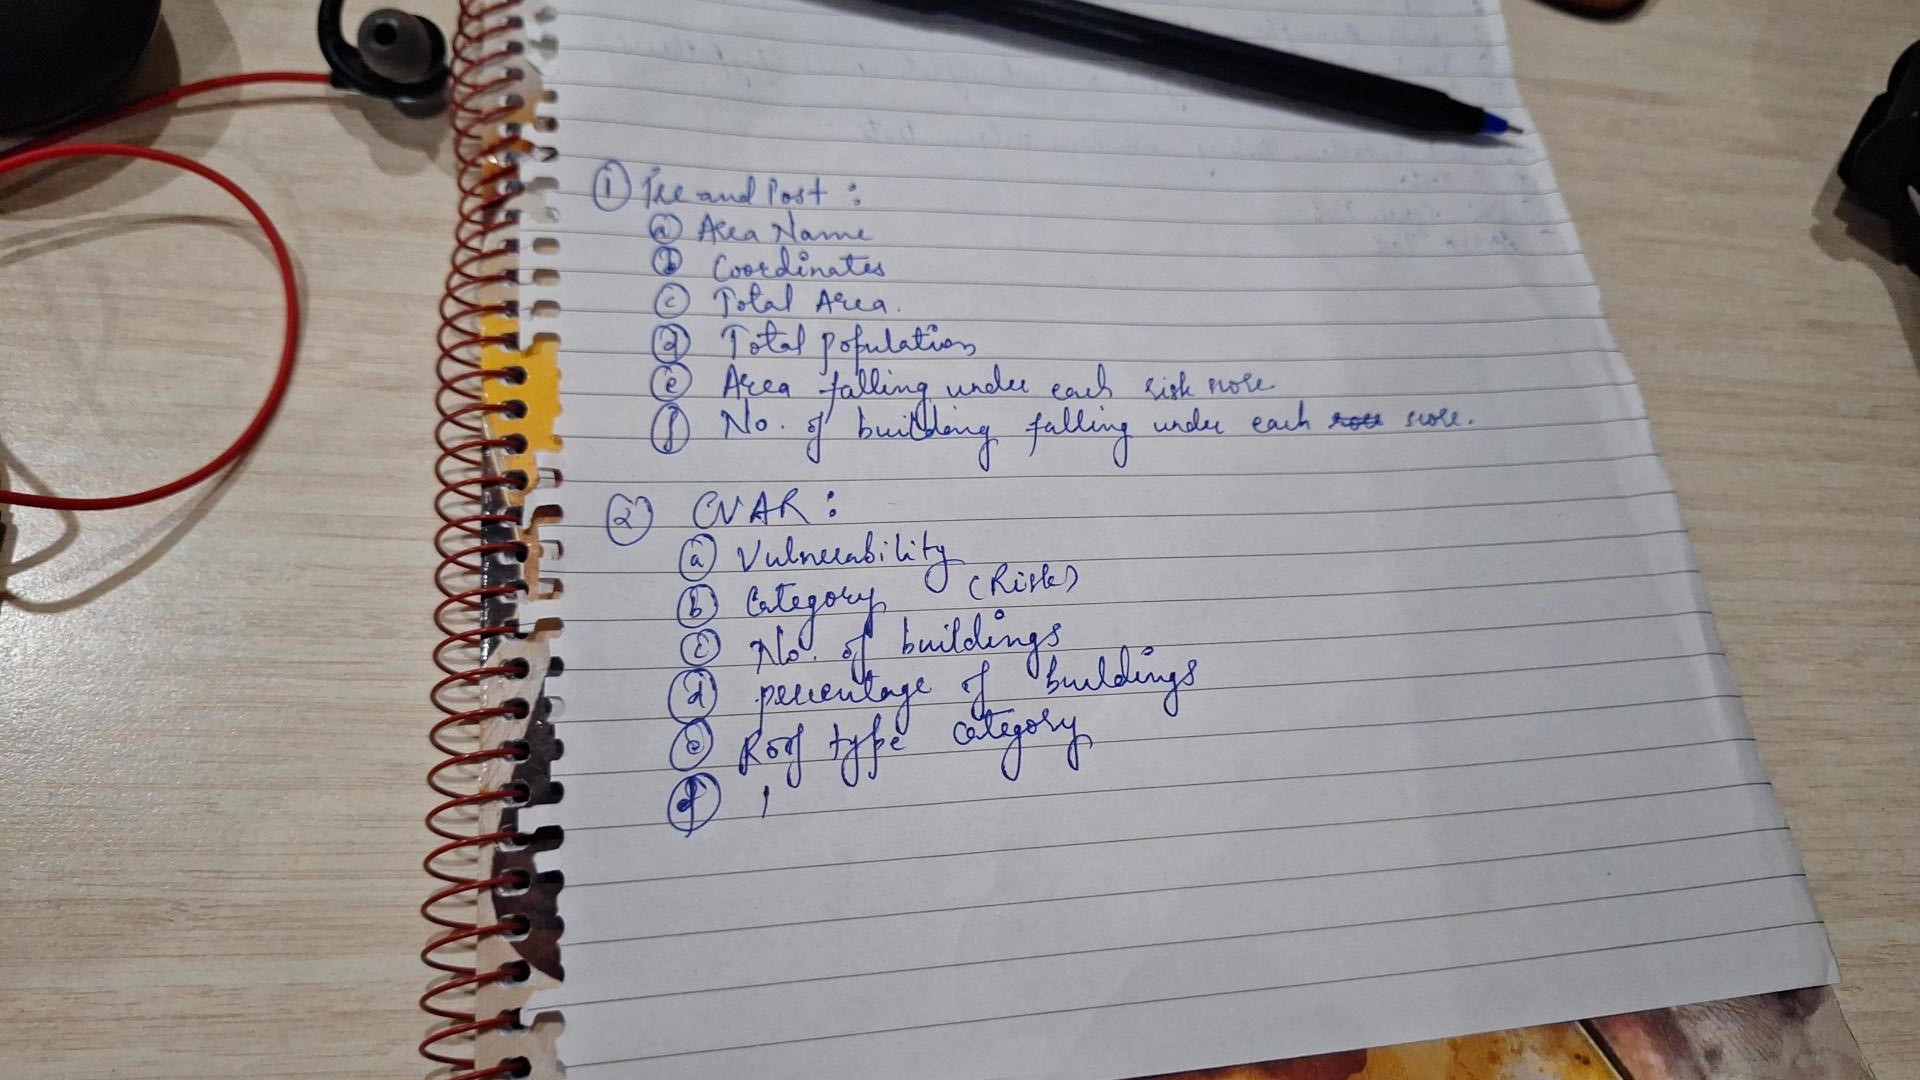 ① Pre and Post :
ⓐ Area Name
ⓑ Coordinates
ⓒ Total Area.
ⓓ Total population
ⓔ Area falling under each risk score.
ⓕ No. of building falling under each score.
② CVAR :
ⓐ Vulnerability
ⓑ Category (Risk)
ⓒ No. of buildings
ⓓ percentage of buildings
ⓔ Roof type category
ⓕ